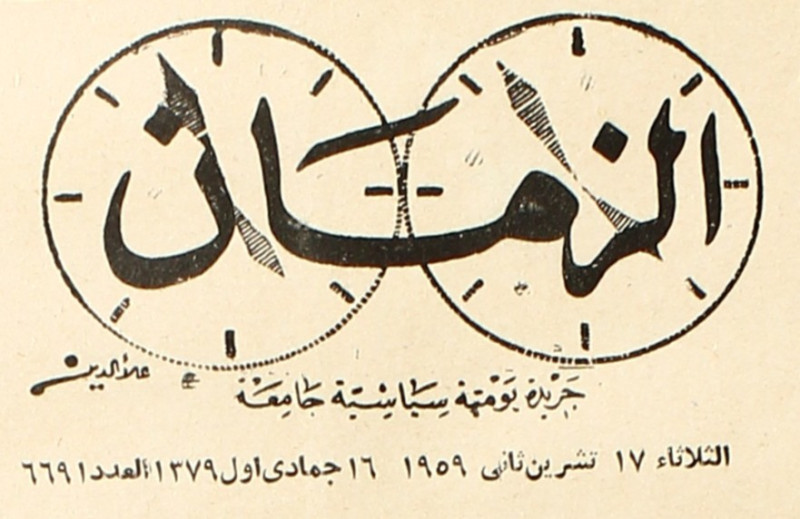 الزمان
علاء الدين
جريدة يومية سياسية جامعة
الثلاثاء ١٧ تشرين ثاني ١٩٥٩ ١٦ جمادى اول ١٣٧٩ العدد ٦٦٩١